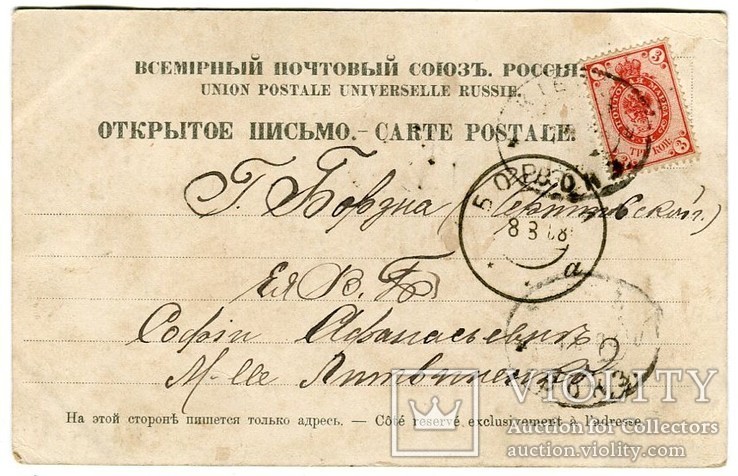 ВСЕМІРНЫЙ ПОЧТОВЫЙ СОЮЗЪ. РОССІЯ
UNION POSTALE UNIVERSELLE RUSSIE.
3 3
ТРИ КОП.
ОТКРЫТОЕ ПИСЬМО.-CARTE POSTALE.
Г. Борзна (Черниговской г.)
БОРЗ
8 3 08
а
Ея В. Б.
Софіи Афанасьевнѣ
M-lle Литвиненко
На этой сторонѣ пишется только адресъ. — Côté réservé exclusivement à l'adresse.
VIOLITY
Auction for Collectors
auction.violity.com